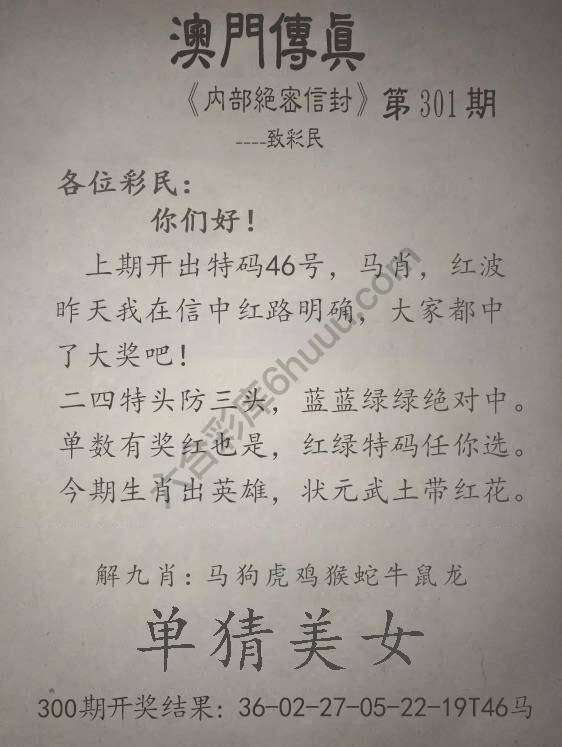 澳門傳真
《内部絕密信封》第301期
----致彩民
各位彩民：
你们好！
上期开出特码46号，马肖，红波
昨天我在信中红路明确，大家都中
了大奖吧！
二四特头防三头，蓝蓝绿绿绝对中。
单数有奖红也是，红绿特码任你选。
今期生肖出英雄，状元武士带红花。
解九肖：马狗虎鸡猴蛇牛鼠龙
单猜美女
300期开奖结果：36-02-27-05-22-19T46马
六合彩库6huuu.com